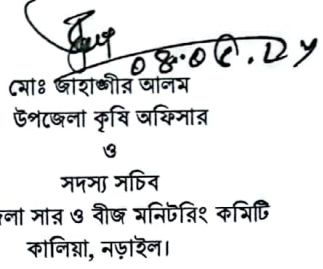 ০৪.০৫.২৫
মোঃ জাহাঙ্গীর আলম
উপজেলা কৃষি অফিসার
ও
সদস্য সচিব
লা সার ও বীজ মনিটরিং কমিটি
কালিয়া, নড়াইল।